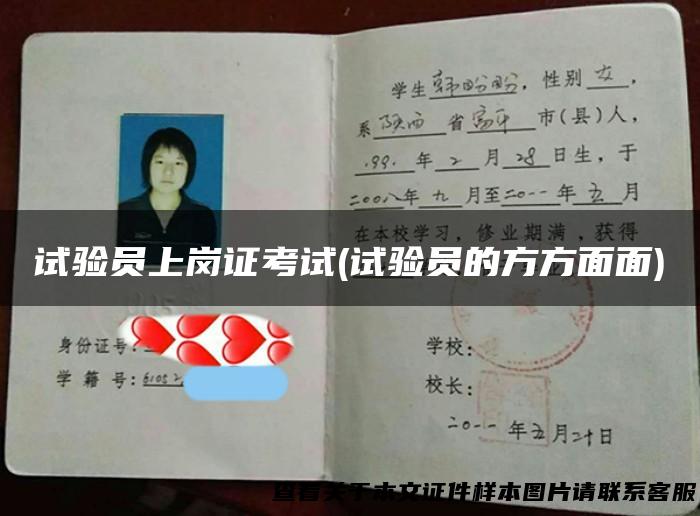 学生韩盼盼，性别女，
系陕西省富平市(县)人，
1991年2月28日生，于
二00八年九月至二0一一年五月
在本校学习，修业期满，获得
试验员上岗证考试(试验员的方方面面)
身份证号：
学籍号：61052
学校：
校长：
二0一一年五月二十日
查看关于本文证件样本图片请联系客服